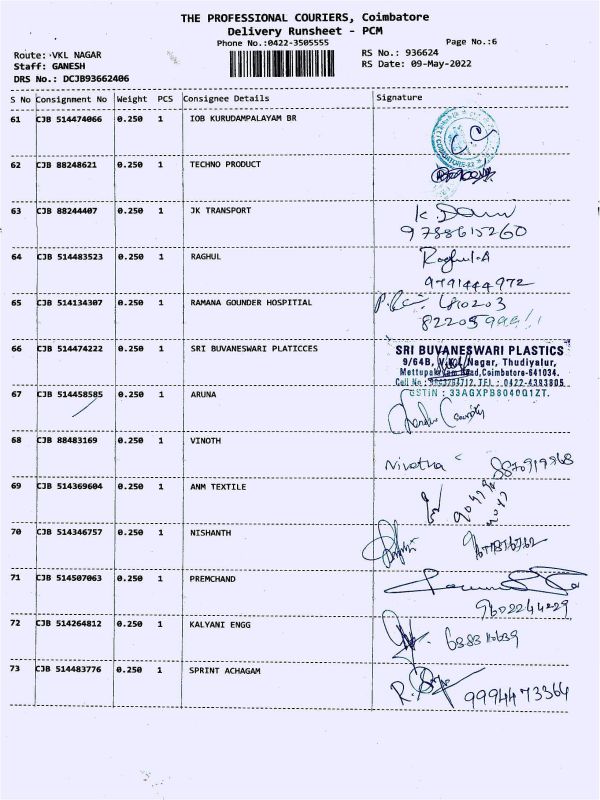 THE PROFESSIONAL COURIERS, Coimbatore
Delivery Runsheet - PCM
Phone No.:0422-3505555
Page No.:6
Route: VKL NAGAR
RS No.: 936624
Staff: GANESH
RS Date: 09-May-2022
DRS No.: DCJB93662406
S No Consignment No Weight PCS Consignee Details Signature
61 CJB 514474066 0.250 1 IOB KURUDAMPALAYAM BR
62 CJB 88248621 0.250 1 TECHNO PRODUCT
63 CJB 88244407 0.250 1 JK TRANSPORT
9788615260
64 CJB 514483523 0.250 1 RAGHUL Raghul.A
9791444972
65 CJB 514134307 0.250 1 RAMANA GOUNDER HOSPITIAL
66 CJB 514474222 0.250 1 SRI BUVANESWARI PLATICCES SRI BUVANESWARI PLASTICS
9/64B, V.K.L Nagar, Thudiyalur,
Mettupalayam Road, Coimbatore-641034.
TEL : 0422-4393805
GSTIN : 33AGXPB8040Q1ZT.
67 CJB 514458585 0.250 1 ARUNA
68 CJB 88483169 0.250 1 VINOTH Nivetha
69 CJB 514369604 0.250 1 ANM TEXTILE
70 CJB 514346757 0.250 1 NISHANTH
71 CJB 514507063 0.250 1 PREMCHAND
9602244229
72 CJB 514264812 0.250 1 KALYANI ENGG
73 CJB 514483776 0.250 1 SPRINT ACHAGAM 9994473364